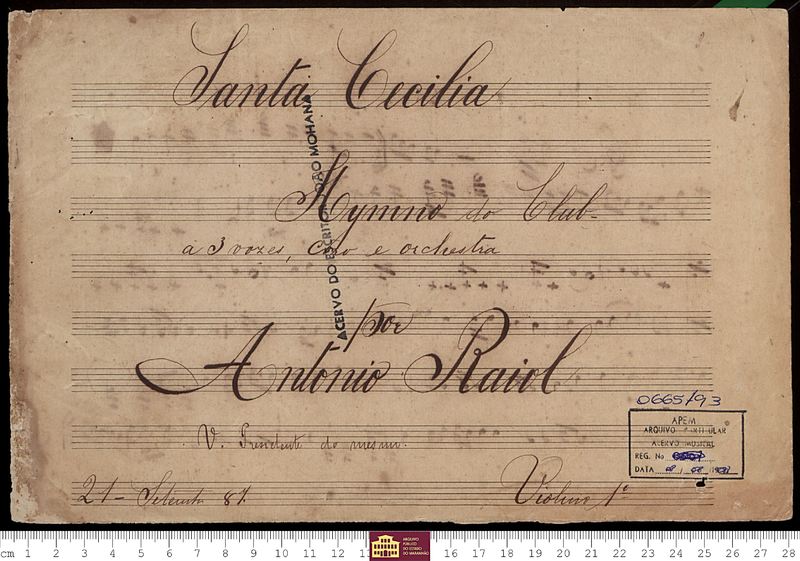 Santa Cecilia
Hymno do Club-
a 3 vozes, coro e orchestra
por
Antonio Raiol
V. Presidente do mesmo.
21- Setembro 81.
Violino 1º
ACERVO DO ESCRITOR JOÃO MOHANA
0665/93
APEM
ARQUIVO PARTICULAR
ACERVO MUSICAL
REG. No
DATA
cm 1 2 3 4 5 6 7 8 9 10 11 12 16 17 18 19 20 21 22 23 24 25 26 27 28
ARQUIVO
PÚBLICO
DO ESTADO
DO MARANHÃO